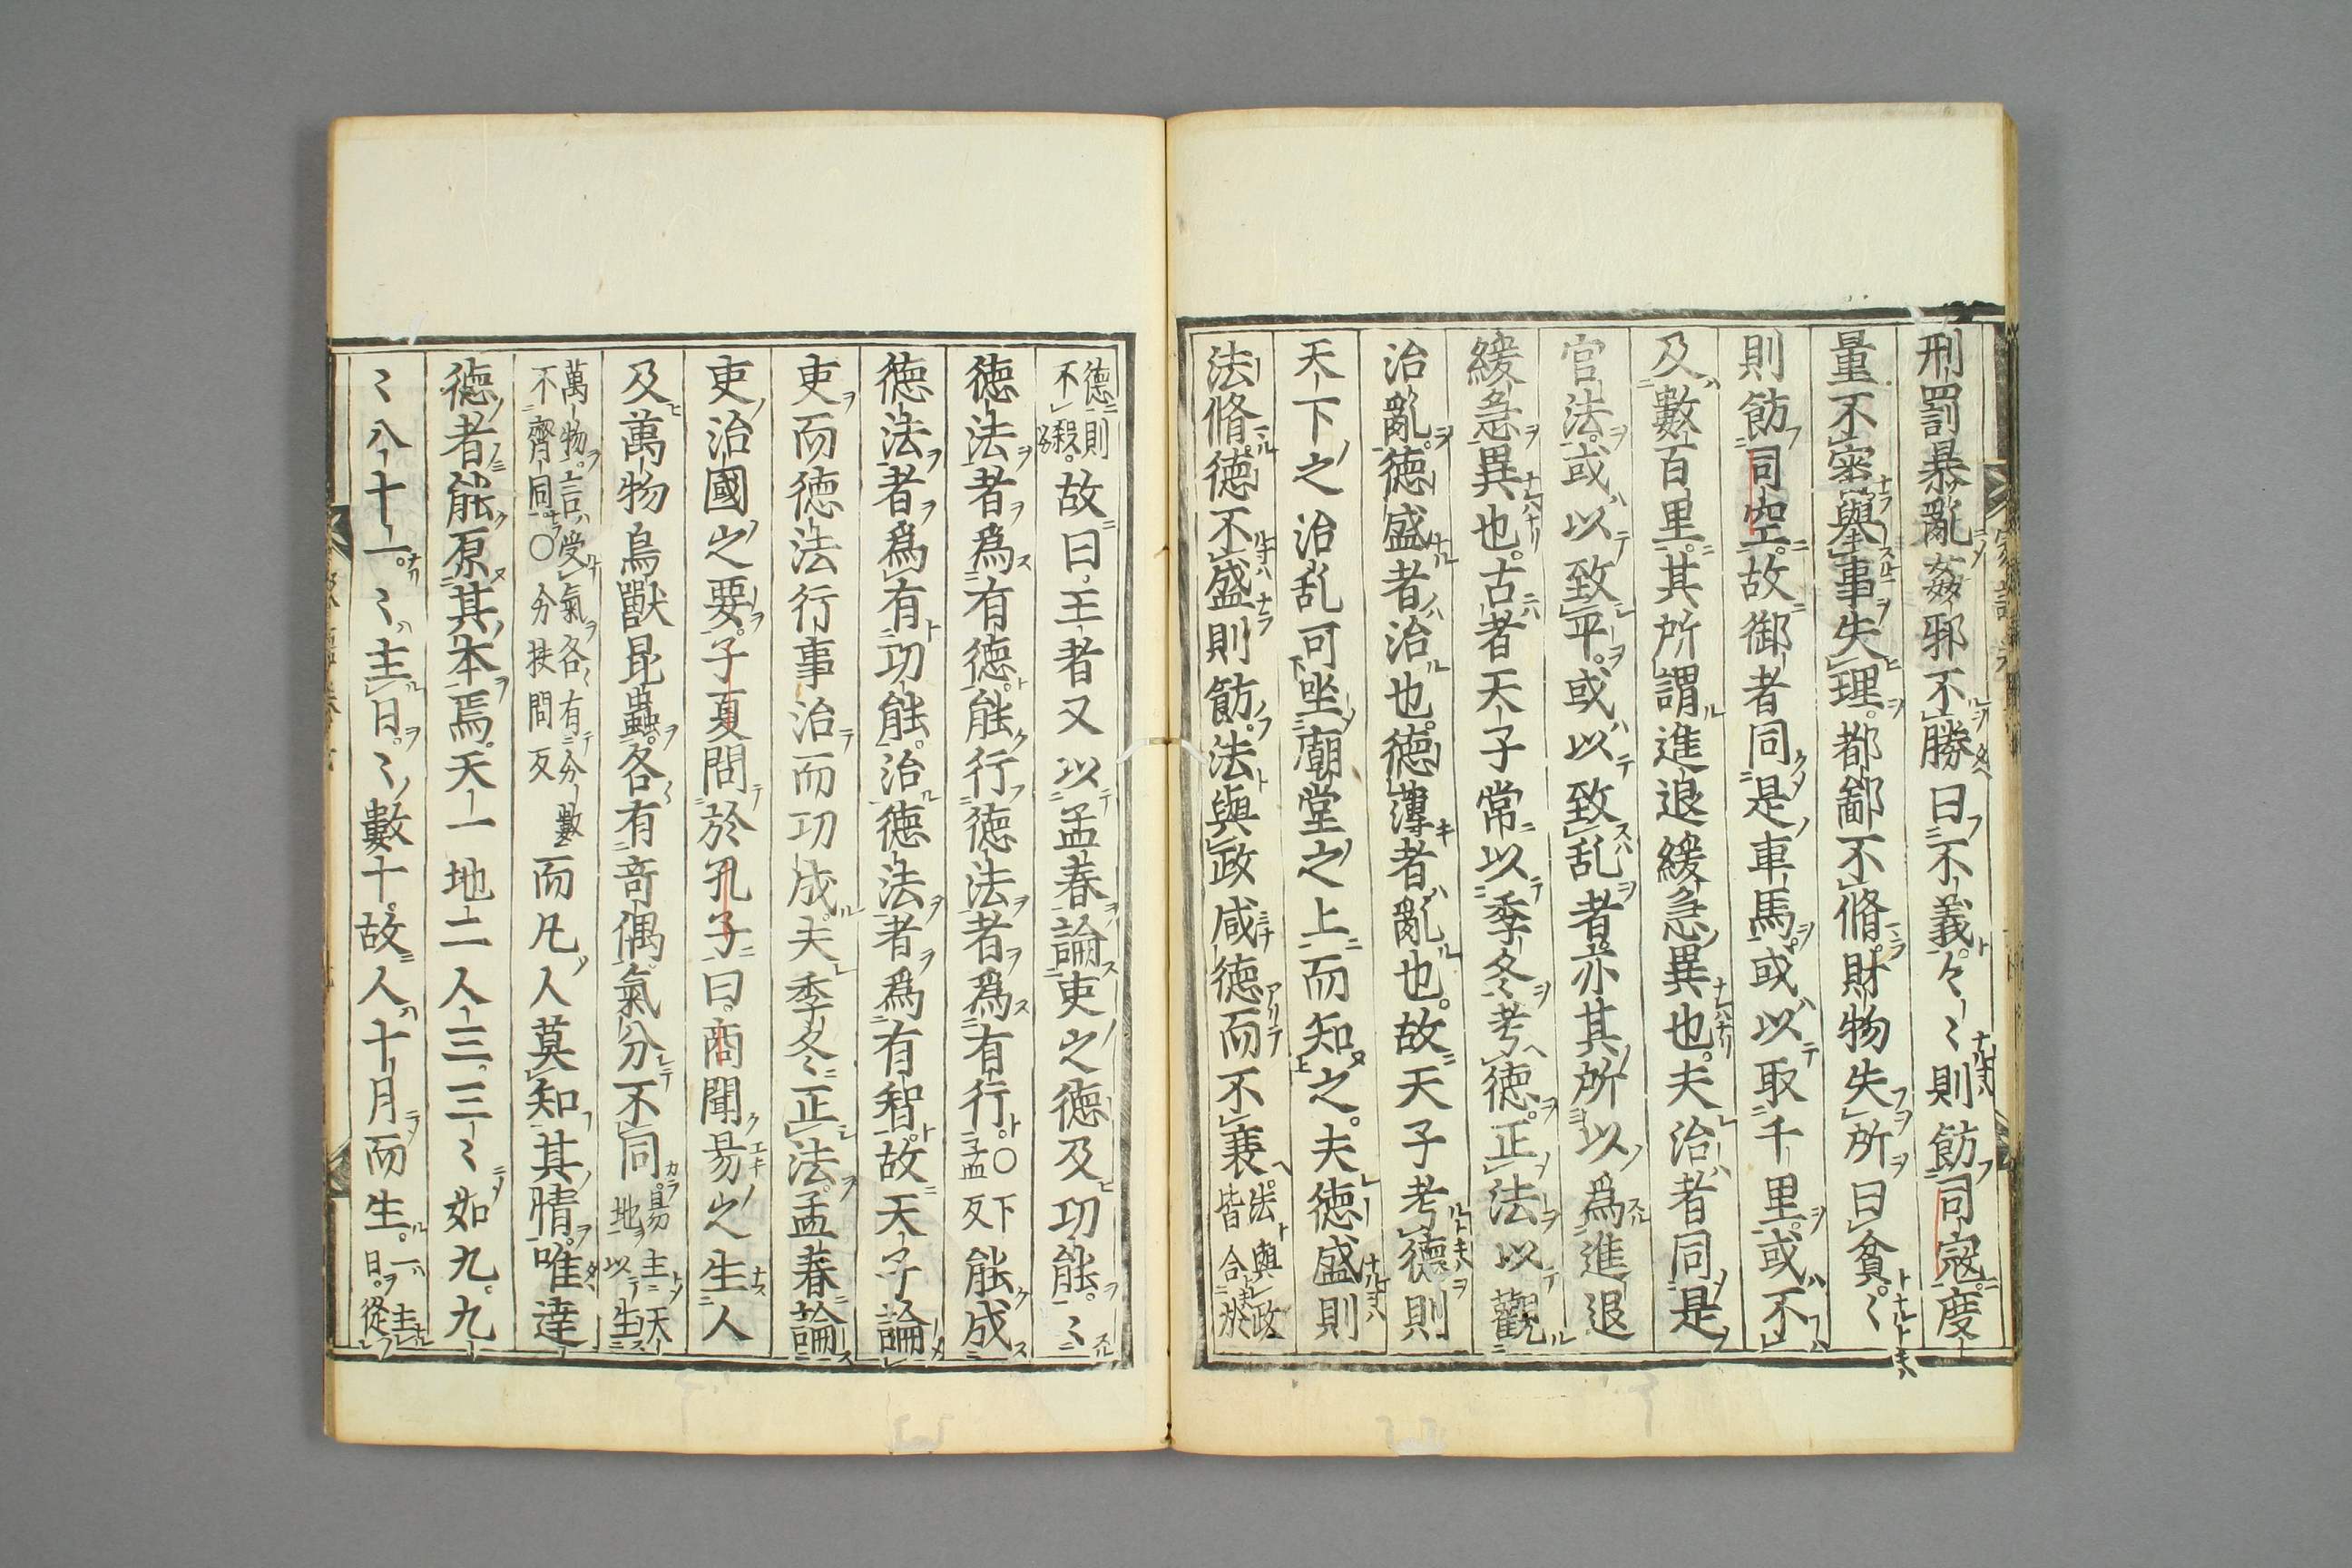 刑罰暴亂姦邪不勝曰不義々〻則飭司寇度
量不審擧事失理都鄙不脩財物失所曰貧〻
則飭司空故御者同是車馬或以取千里或不
及數百里其所謂進退緩急異也夫治者同是
官法或以致平或以致乱者亦其所以爲進退
緩急異也古者天子常以季冬考德正法以觀
治亂德盛者治也德薄者亂也故天子考德則
天下之治乱可坐廟堂之上而知之夫德盛則
法脩德不盛則飭法與政咸德而不衰法與政皆合於
德則不殺故曰王者又以孟春論吏之德及功能〻
德法者爲有德能行德法者爲有行〇孟下反能成
德法者爲有功能治德法者爲有智故天子論
吏而德法行事治而功成夫季冬正法孟春論
吏治國之要子夏問於孔子曰商聞易之生人
及萬物鳥獸昆蟲各有奇偶氣分不同易主天地以生
萬物言受氣各有分數不齊同〇分扶問反而凡人莫知其情唯達
德者能原其本焉天一地二人三三〻如九九
〻八十一〻主日〻數十故人十月而生一主日從